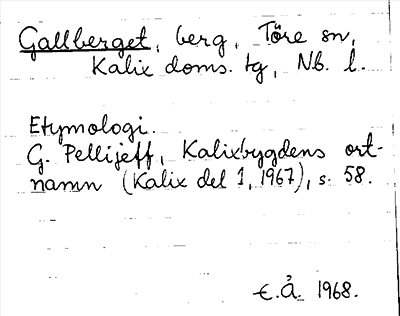 Gallberget, berg, Töre sn,
Kalix doms. tg, Nb. l.
Etymologi.
G. Pellijeff, Kalixbygdens ort-
namn (Kalix del 1, 1967), s. 58.
E.Å. 1968.